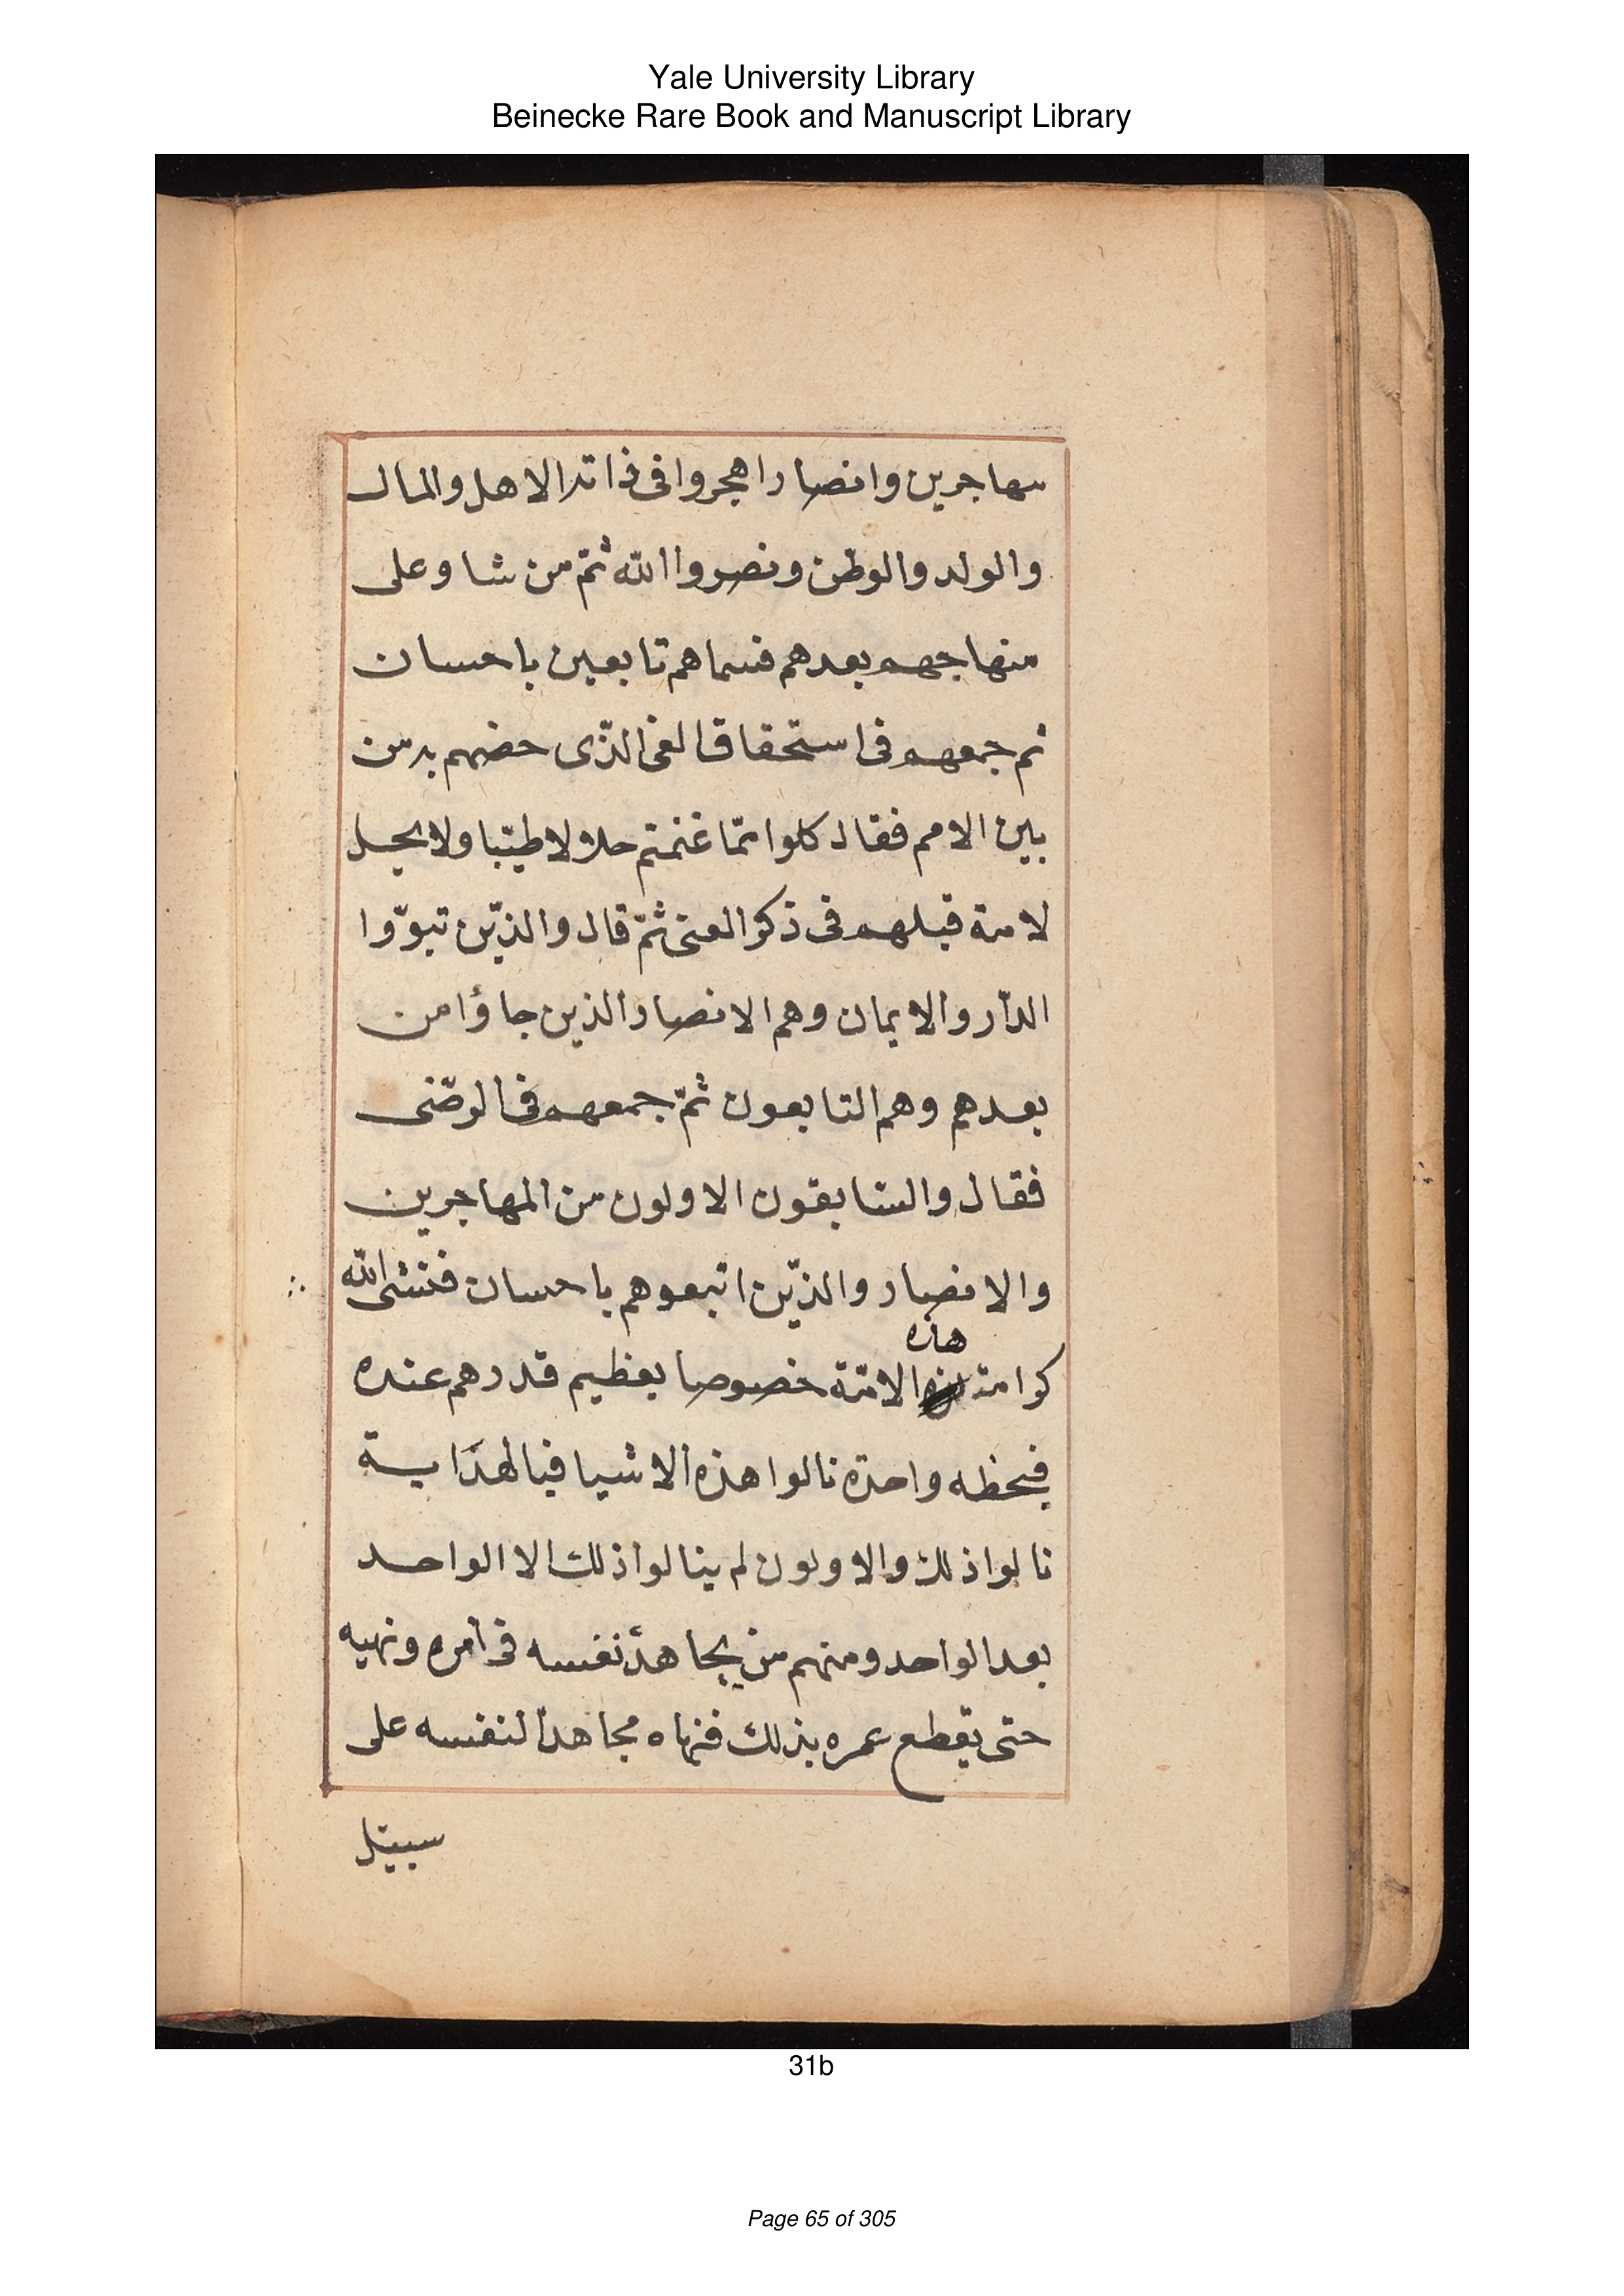 Yale University Library
Beinecke Rare Book and Manuscript Library
مهاجرين وانصارا هجروا فى ذاته الاهل والمال
والولد والوطن ونصروا الله ثمّ من شا وعلى
منهاجهم بعدهم فسماهم تابعين باحسان
ثم جمعهم فى استحقاق الفى الذّى خصهم به من
بين الامم فقال كلوا ممّا غنمتم حلالا طيّبا ولا يحل
لامة قبلهم فى ذكر الغنى ثمّ قال والذيّن تبوّوا
الدّار والايمان وهم الانصار والذين جاؤا من
بعدهم وهم التابعون ثمّ جمعهم فى الرضّى
فقال والسّابقون الاولون من المهاجرين
والانصار والذيّن اتبعوهم باحسان الله
كرامة هذه الامّة خصوصا بعظيم قدرهم عنده
واحدة نالوا هذه الاشيا فبالهداية
نالوا ذلك والاولون لم ينالوا ذلك الا الواحد
بعد الواحد ومنهم من يجاهد نفسه فى امره ونهيه
حتى يقطع عمره بذلك مجاهدا لنفسه على
سبيل
31b
Page 65 of 305